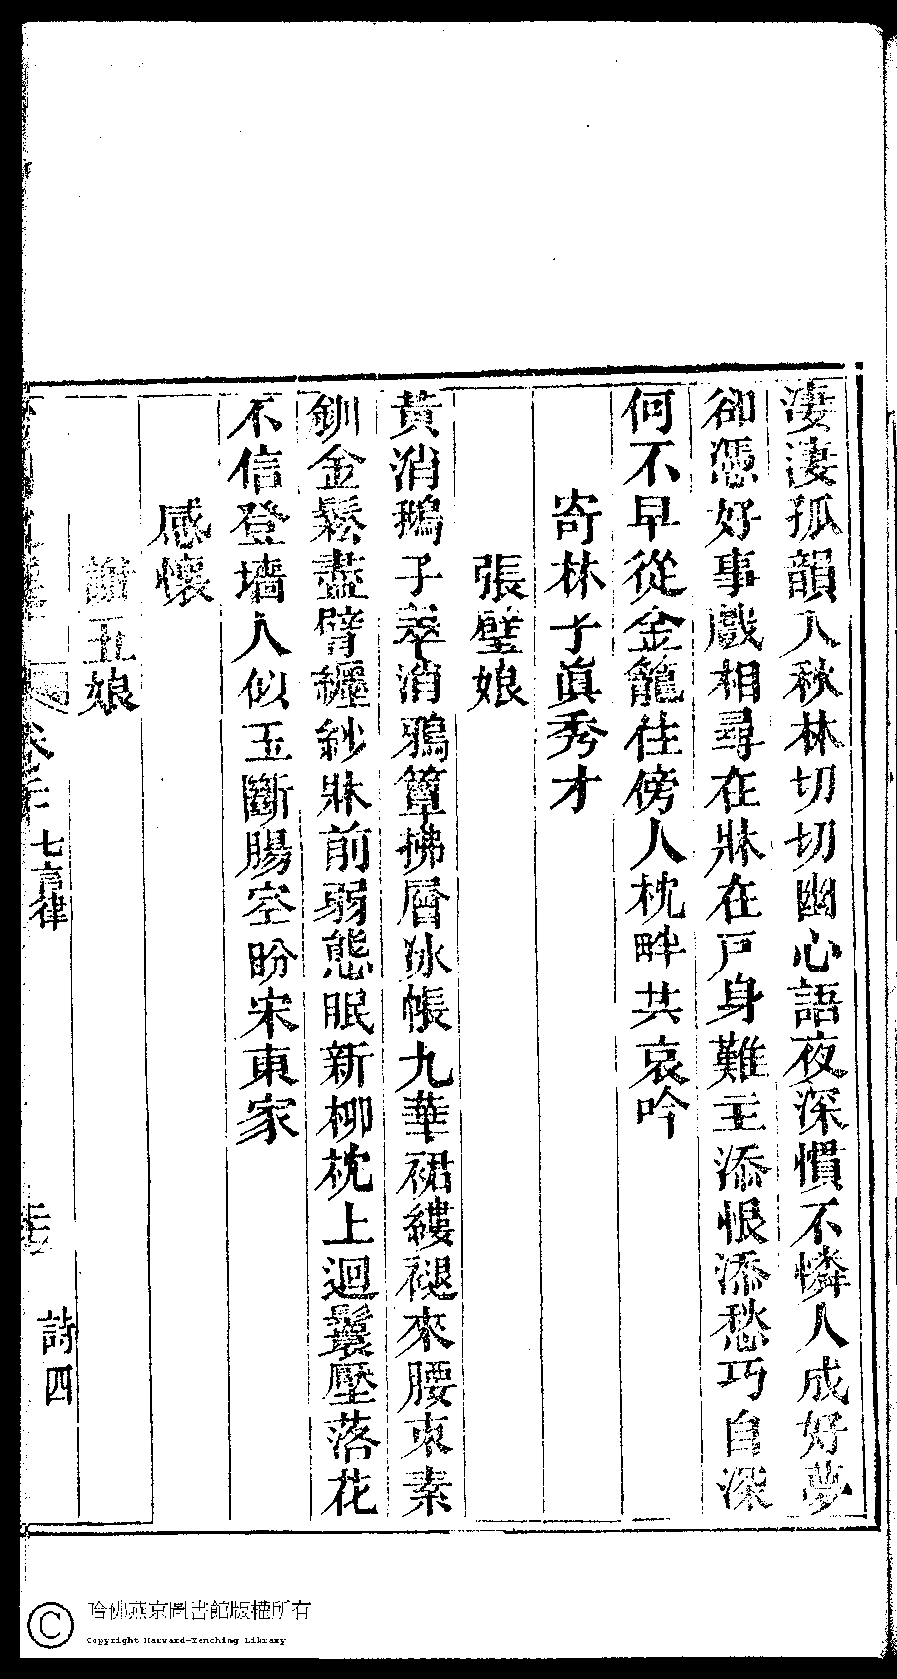 淒淒孤韻入秋林切切幽心語夜深慣不憐人成好夢
卻憑好事戲相尋在牀在戸身難主添恨添愁巧自深
何不早從金籠住傍人枕畔共哀吟
寄林子眞秀才
張璧娘
黃消鵝子翠消鴉簟拂層冰帳九華裙縷褪來腰束素
釧金鬆盡臂纏紗牀前弱態眠新柳枕上迴鬟壓落花
不信登墻人似玉斷腸空盼宋東家
感懷
謝五娘
七言律
詩四
哈佛燕京圖書館版權所有
Copyright Harvard-Yenching Library